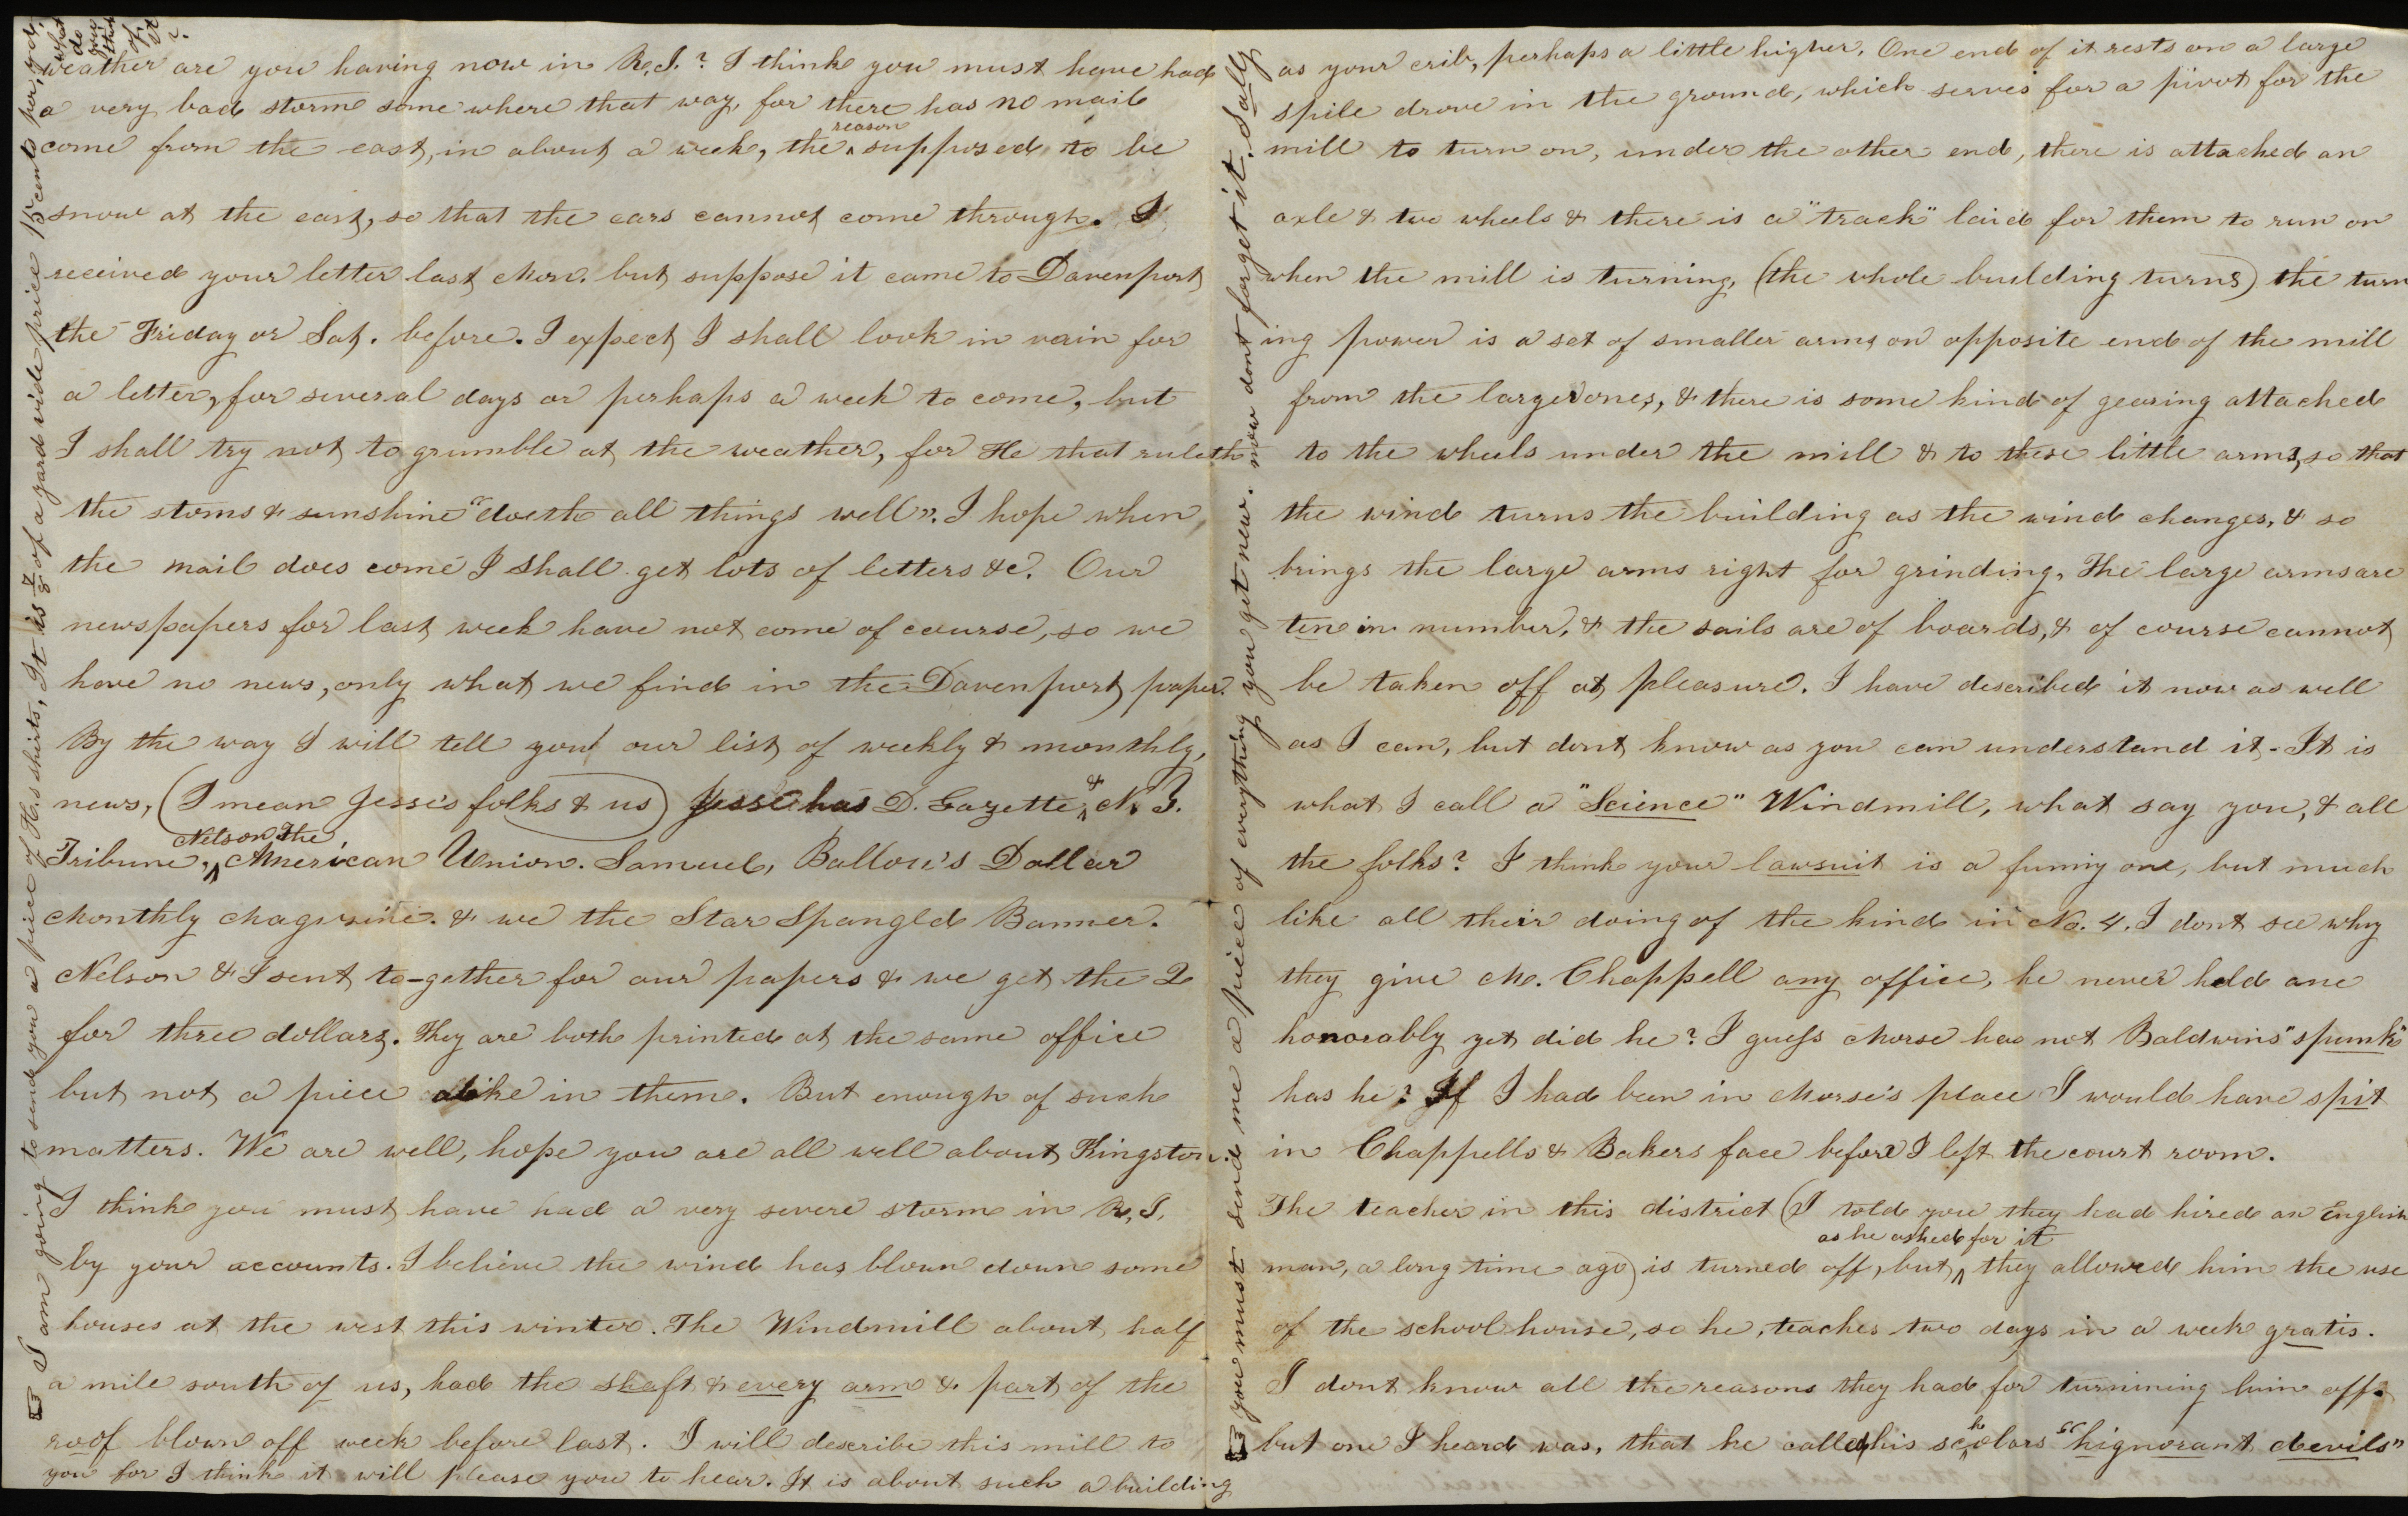 weather are you having now in R.I.? I think you must have had
a very bad storm some where that way, for there has no mail
come from the east, in about a week, the reason supposed to be
snow at the east, so that the cars cannot come through. I
received your letter last Mon. but suppose it came to Davenport
the Friday or Sat. before. I expect I shall look in vain for
a letter, for several days or perhaps a week to come, but
I shall try not to grumble at the weather, for He that ruleth
the stoms & sunshine "doeth all things well". I hope when
the mail does come I shall get lots of letters &c. Our
newspapers for last week have not come of course, so we
have no news, only what we find in the Davenport paper.
By the way I will tell you our list of weekly & monthly,
news, (I mean Jesse's folks & us) Jesse has D. Gazette, & N. Y.
Tribune, Nelson The American Union. Samuel, Ballou's Dollar
Monthly Magazine. & we the Star Spangled Banner.
Nelson & I sent to-gether for our papers & we get the 2
for three dollars. They are both printed at the same office
but not a piece alike in them. But enough of such
matters. We are well, hope you are all well about Kingston.
I think you must have had a very severe storm in R.I.
by your accounts. I believe the wind has blown down some
houses at the west this winter. The Windmill about half
a mile south of us, had the shaft & every arm & part of the
roof blown off week before last. I will describe this mill to
you for I think it will please you to hear. It is about such a building
I am going to send you a piece of H.s shirts, It is 7/8 of a yard wide price 15 cents per. yd.
what
do
you
think
of
it
?
as your crib, perhaps a little higher. One end of it rests on a large
spile drove in the ground, which serves for a pivot for the
mill to turn on, under the other end, there is attached an
axle & two wheels & there is a "track" laid for them to run on
when the mill is turning, (the whole building turns) the turn
ing power is a set of smaller arms on opposite end of the mill
from the larger ones, & there is some kind of gearing attached
to the wheels under the mill & to these little arms, so that
the wind turns the building as the wind changes, & so
brings the large arms right for grinding, The large arms are
ten in number, & the sails are of boards, & of course cannot
be taken off at pleasure. I have described it now as well
as I can, but dont know as you can understand it - It is
what I call a "Science" Windmill, what say you, & all
the folks? I think your lawsuit is a funny one, but much
like all their doing of the kind in No. 4. I dont see why
they give M. Chappell any office, he never held one
honorably yet did he? I guess Morse has not Baldwins "spunk"
has he? If I had been in Morse's place I would have spit
in Chappells & Bakers face before I left the court room.
The teacher in this district (I told you they had hired an English
man, a long time ago) is turned off, but, as he asked for it they allowed him the use
of the school house, so he, teaches two days in a week gratis.
I dont know all the reasons they had for turnining him off.
but one I heard was, that he called his scholars "hignorant devils"
you must send me a piece of everything you get new. now dont forget it. Sally